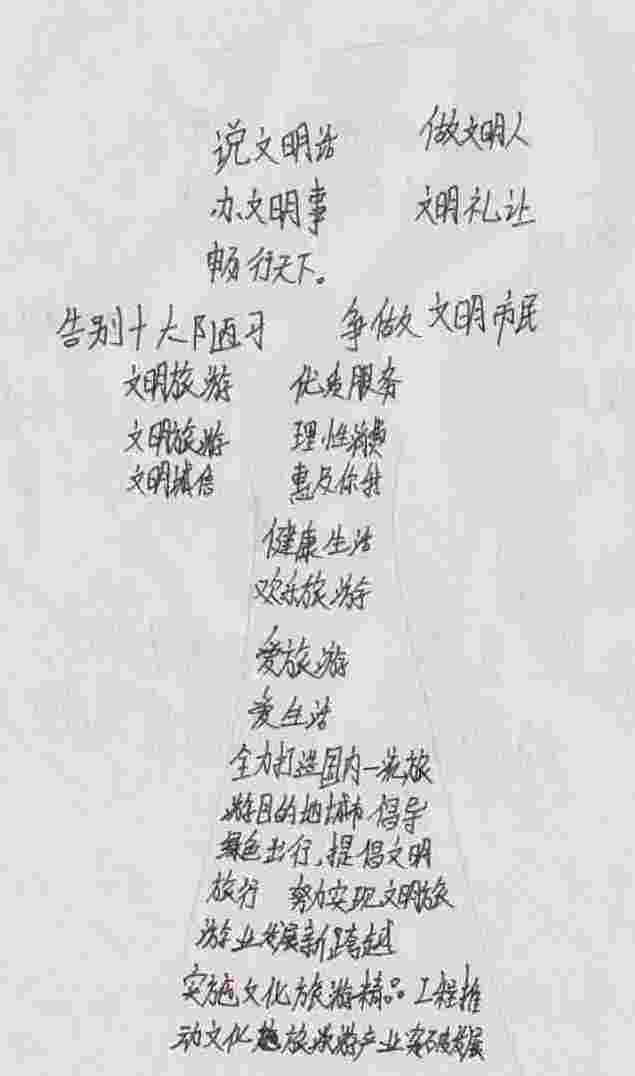 说文明话 做文明人
办文明事 文明礼让
畅行天下。
告别十大陋习 争做文明市民
文明旅游 优质服务
文明旅游 理性消费
文明诚信 惠及你我
健康生活
欢乐旅游
爱旅游
爱生活
全力打造国内一流旅
游目的地城市 倡导
绿色出行,提倡文明
旅行 努力实现文明旅
游业发展新跨越
实施文化旅游精品工程推
动文化旅游产业突破发展